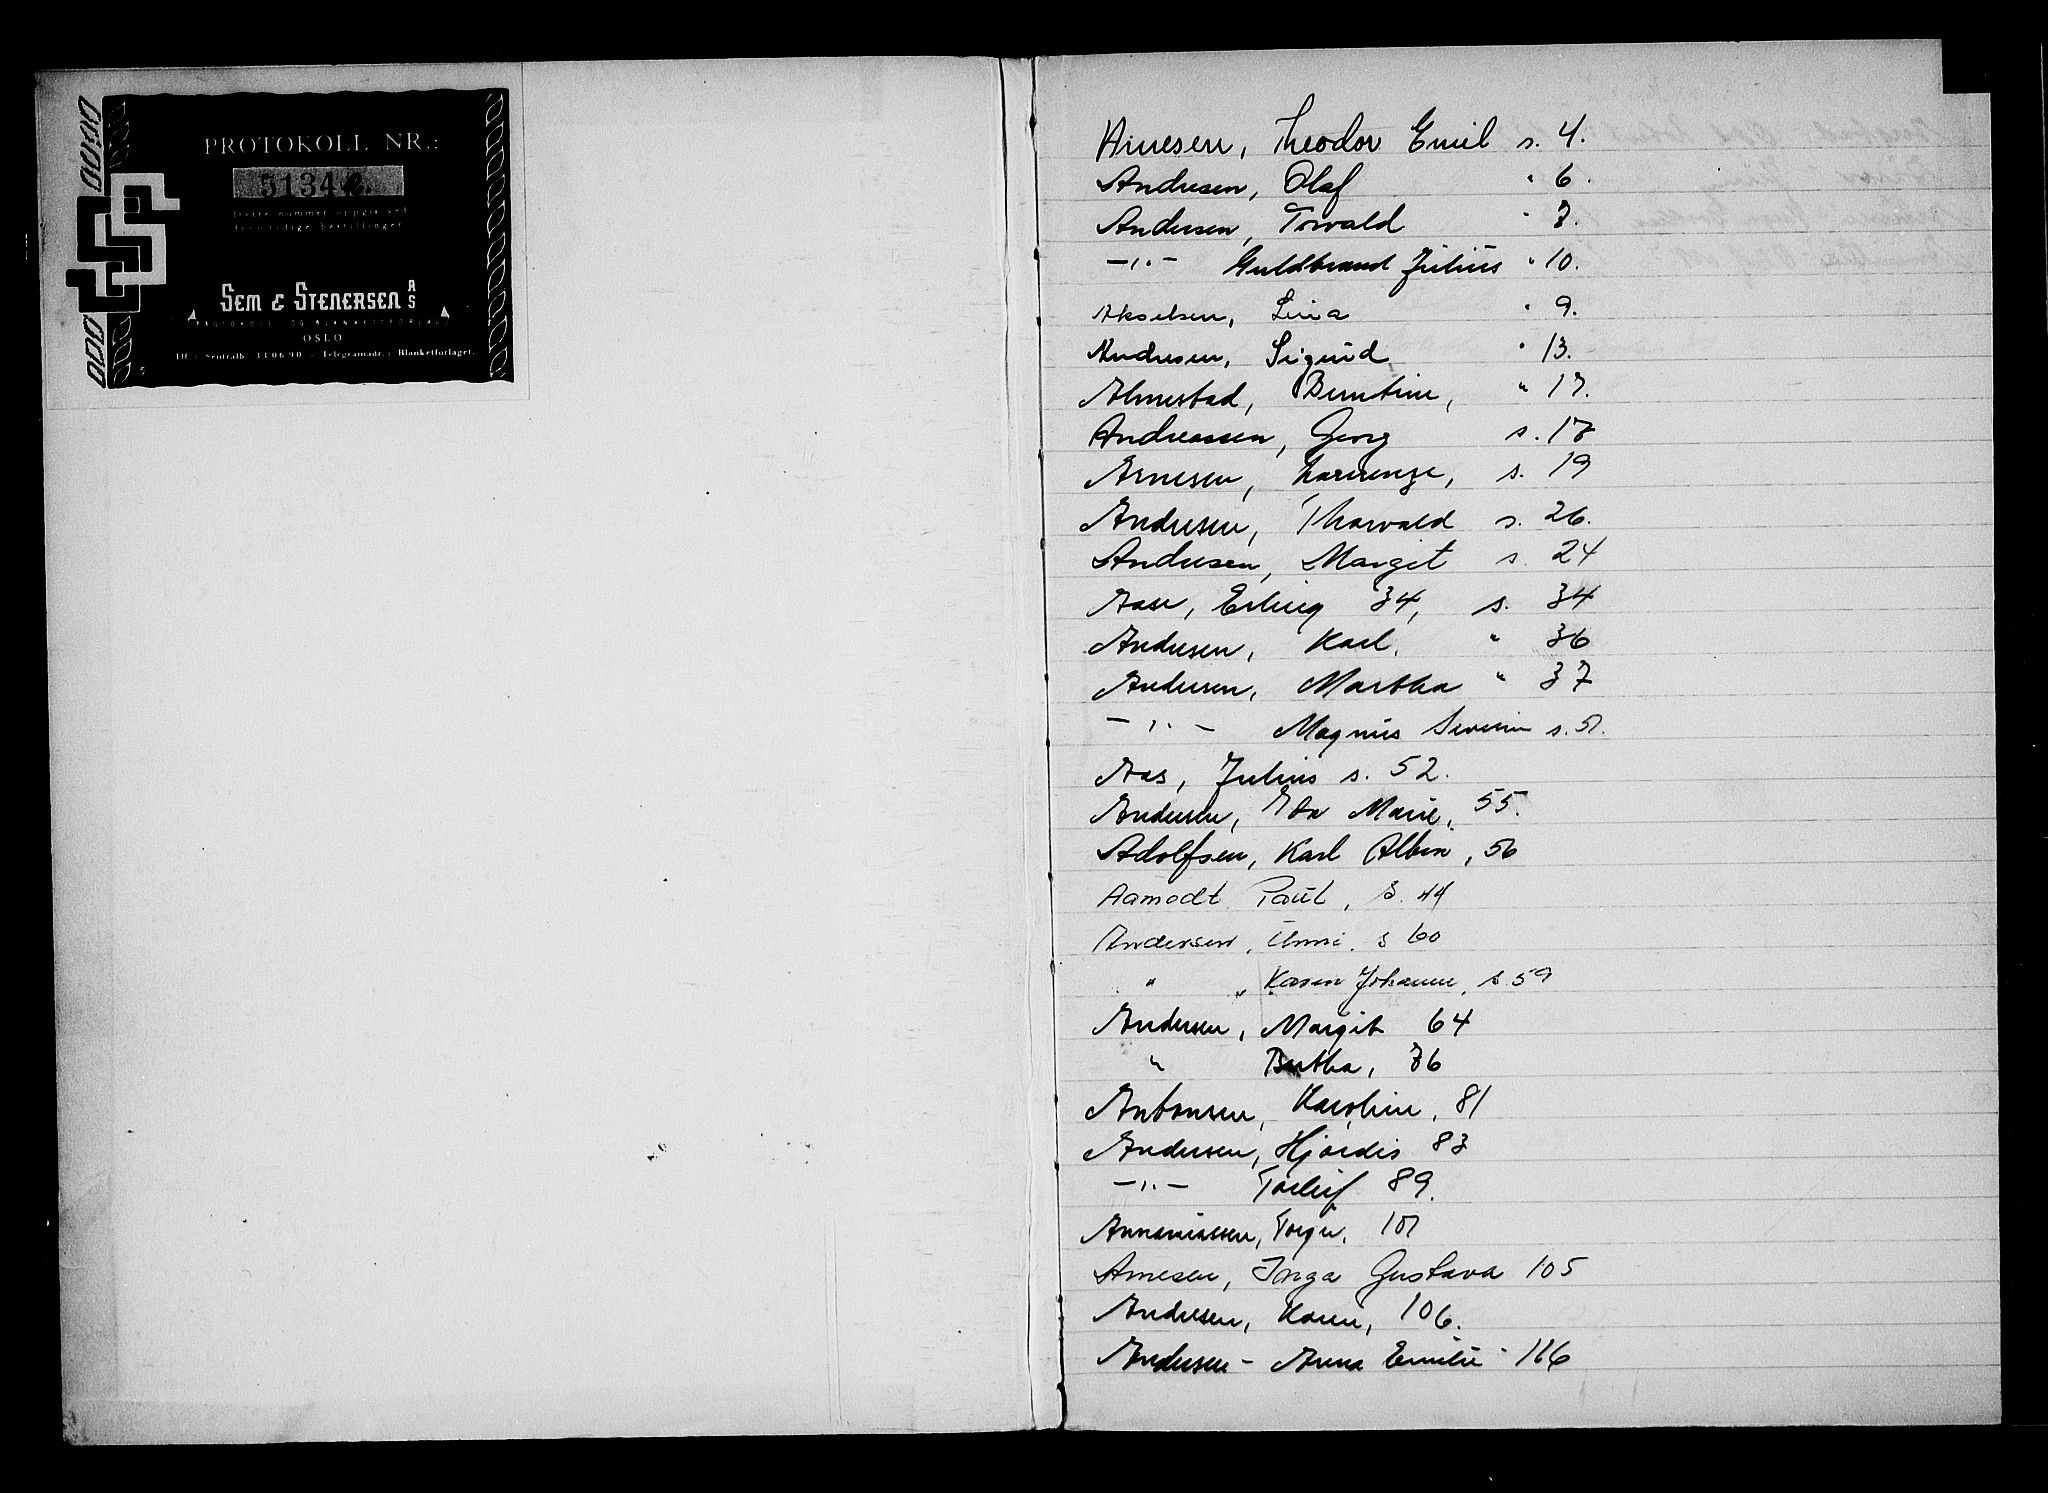 PROTOKOLL NR.:
51342.
Dette nummer oppgis ved
fremtidige bestillinger
SEM & STENERSEN A/S
PROTOKOLL- OG BLANKETTFORLAG
OSLO
Tlf.: Sentralb. 33 06 90 - Telegramadr.: Blanketforlaget.
Arnesen, Theodor Emil s. 4.
Andresen, Olaf " 6.
Andersen, Torvald " 7.
-"- Guldbrand Julius " 10.
Akselsen, Lina " 9.
Andresen, Sigurd " 13.
Almestad, Berntine, " 17.
Andreassen, Georg s. 18
Arnesen, Laurenze, s. 19
Andresen, Thorvald s. 26.
Andresen, Margit s. 24
Aase, Erling 34, s. 34
Andresen, Karl, " 36
Andersen, Martha " 37
-"- Magnus Severin s. 51.
Aas, Julius s. 52.
Andersen, Eda Marie, 55.
Adolfsen, Karl Albin, 56
Aamodt Paul, s. 44
Andersen, Unni, s 60
" " Karen Johanne, s. 59
Andersen, Margit 64
" Bertha, 76
Antonsen, Karoline, 81
Andersen, Hjördis 83
-"- Torleif 89.
Annaniassen, Torger, 101
Arnesen, Inga Gustava 105
Andresen, Karen, 106.
Andersen - Anna Emilie - 116